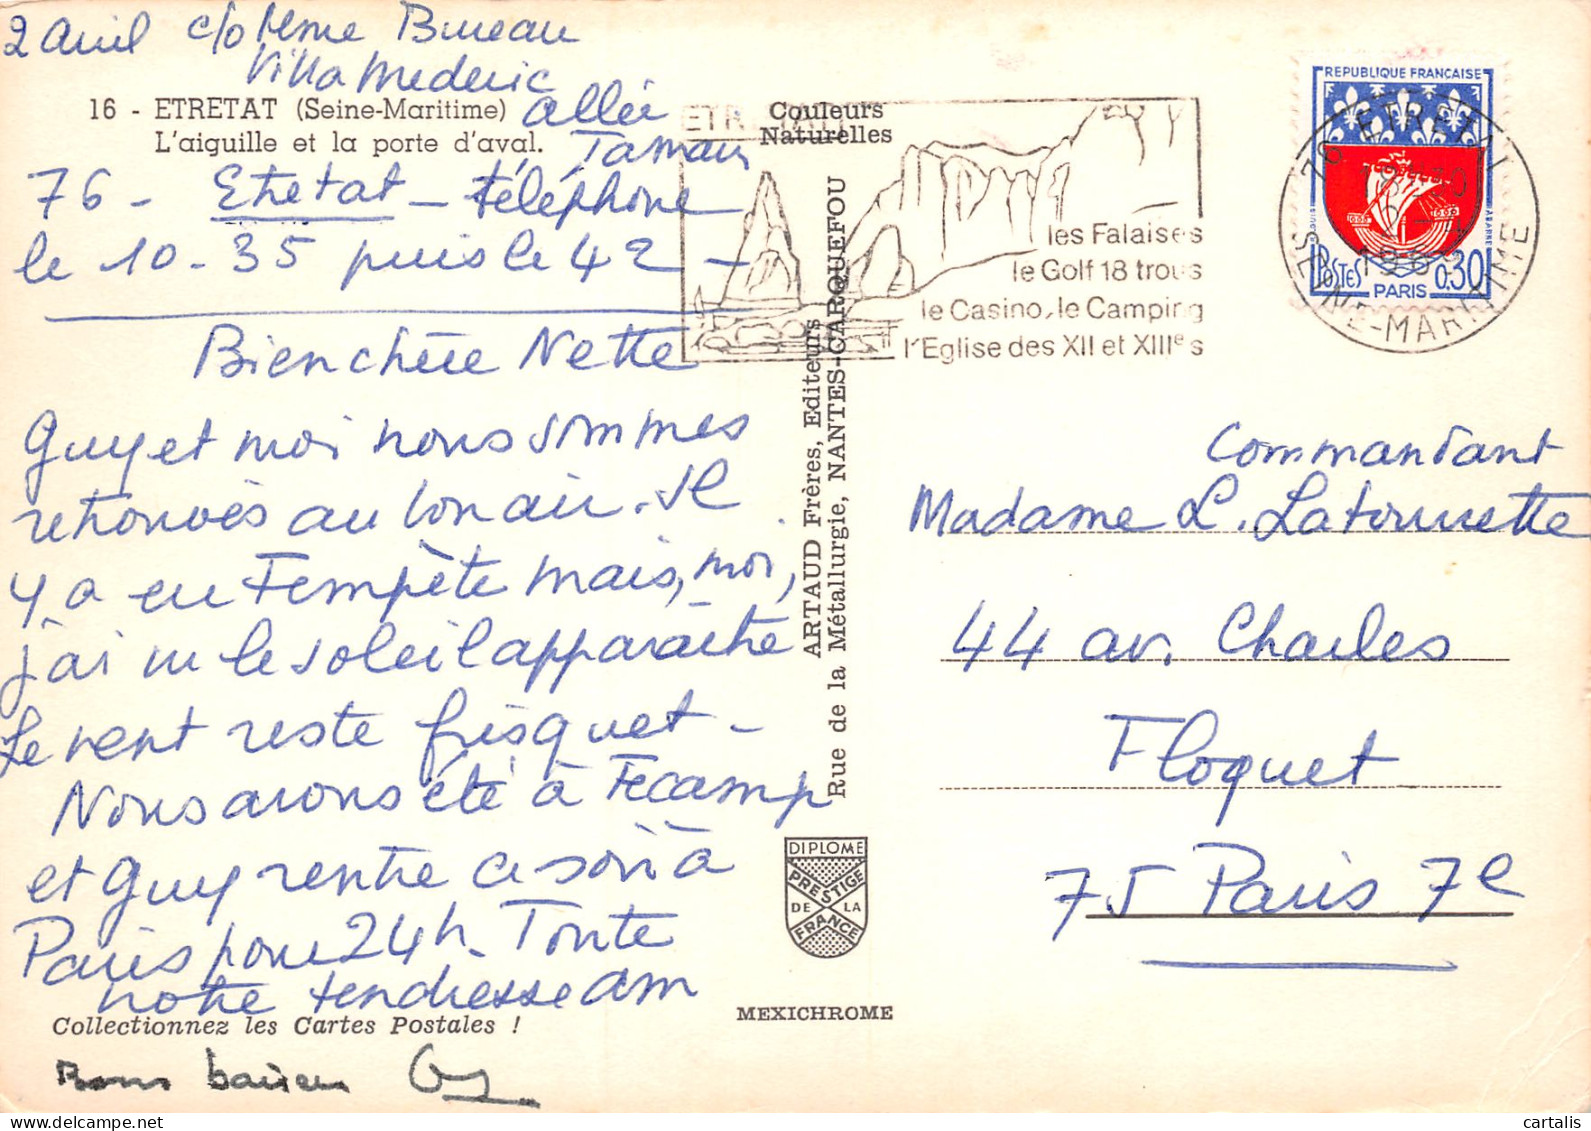 2 Avril c/o Mme Bureau
Villa Mederic
16 - ETRETAT (Seine-Maritime)
allée
L'aiguille et la porte d'aval.
Tamaris
76 - Etretat - téléphone
le 10-35 puis le 42 -
Bien chère Nette
Guy et moi nous sommes
retrouvés au bon air. Il
y a eu Tempête mais, moi,
j'ai vu le soleil apparaître
Le vent reste frisquet -
Nous avons été à Fecamp
et Guy rentre ce soir à
Paris pour 24h. Toute
notre tendresse am
Collectionnez les Cartes Postales !
Bons baisers Guy
Couleurs
Naturelles
ARTAUD Frères, Editeurs
Rue de la Métallurgie, NANTES-CARQUEFOU
DIPLOME
PRESTIGE
DE LA
FRANCE
MEXICHROME
ETRETAT
les Falaises
le Golf 18 trous
le Casino, le Camping
l'Eglise des XII et XIIIe s
REPUBLIQUE FRANÇAISE
POSTES 0,30
PARIS
76 ETRETAT
SEINE-MARITIME
Commandant
Madame L. Latournette
44 av. Charles
Floquet
75 Paris 7e
cartalis